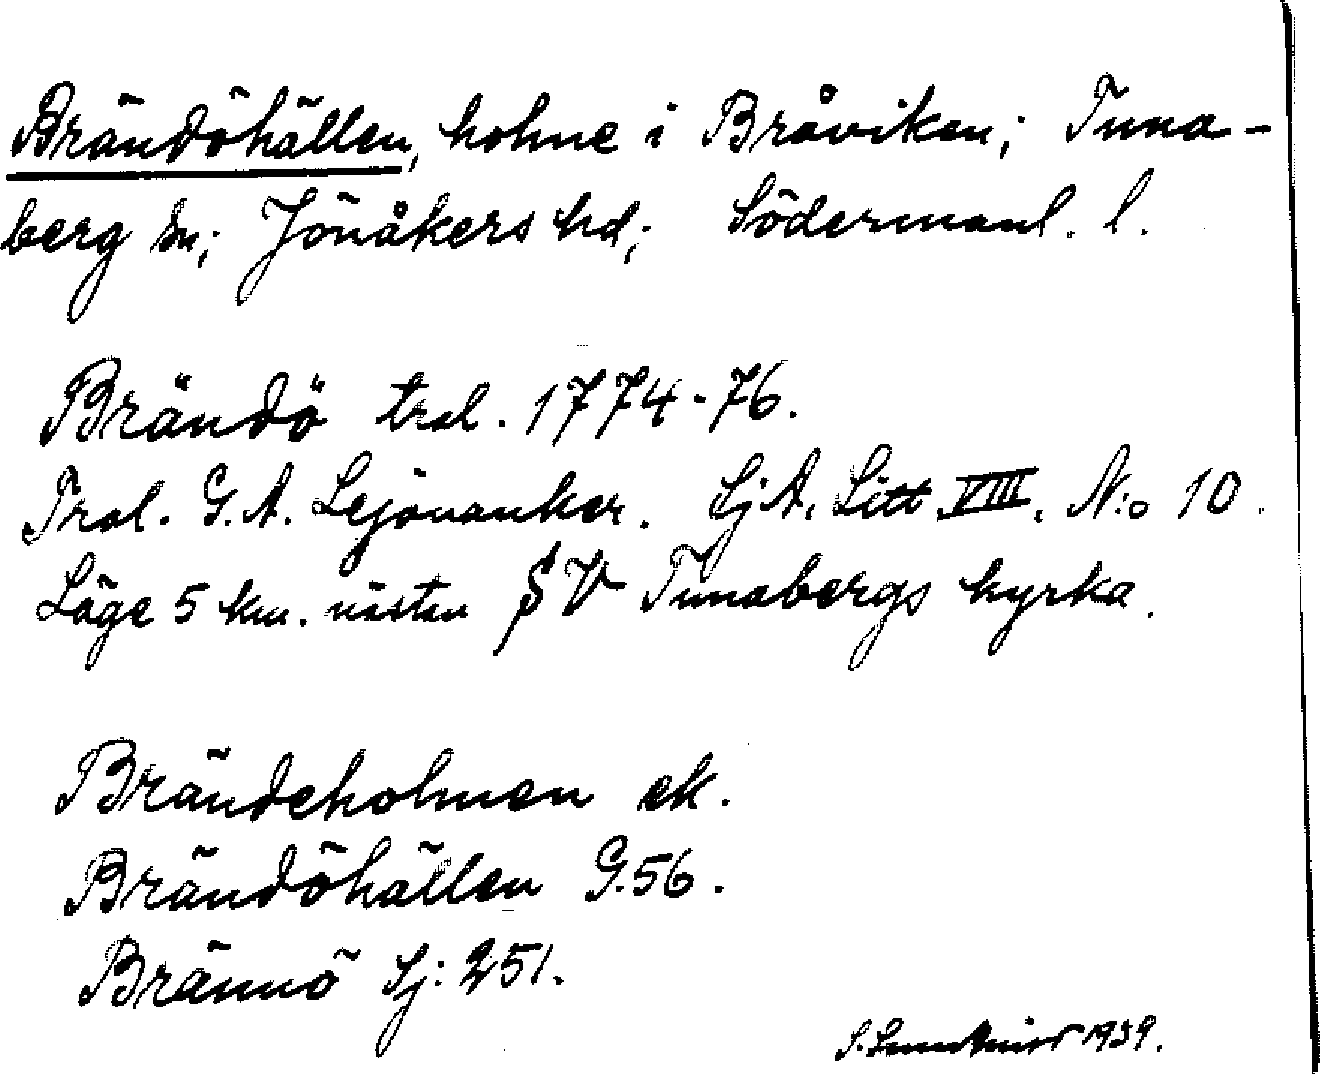 Brändöhällen, holme i Bråviken; Tuna-
berg sn; Jönåkers hd; Södermanl. l.
Brändö trol. 1774-76.
Trol. G.A. Lejonanker. SjA. Litt VIII. N:o 10.
Läge 5 km. nästan SV Tunabergs kyrka.
Brändeholmen ek.
Brändöhällen G.56.
Brännö Sj: 251.
S. 1939.